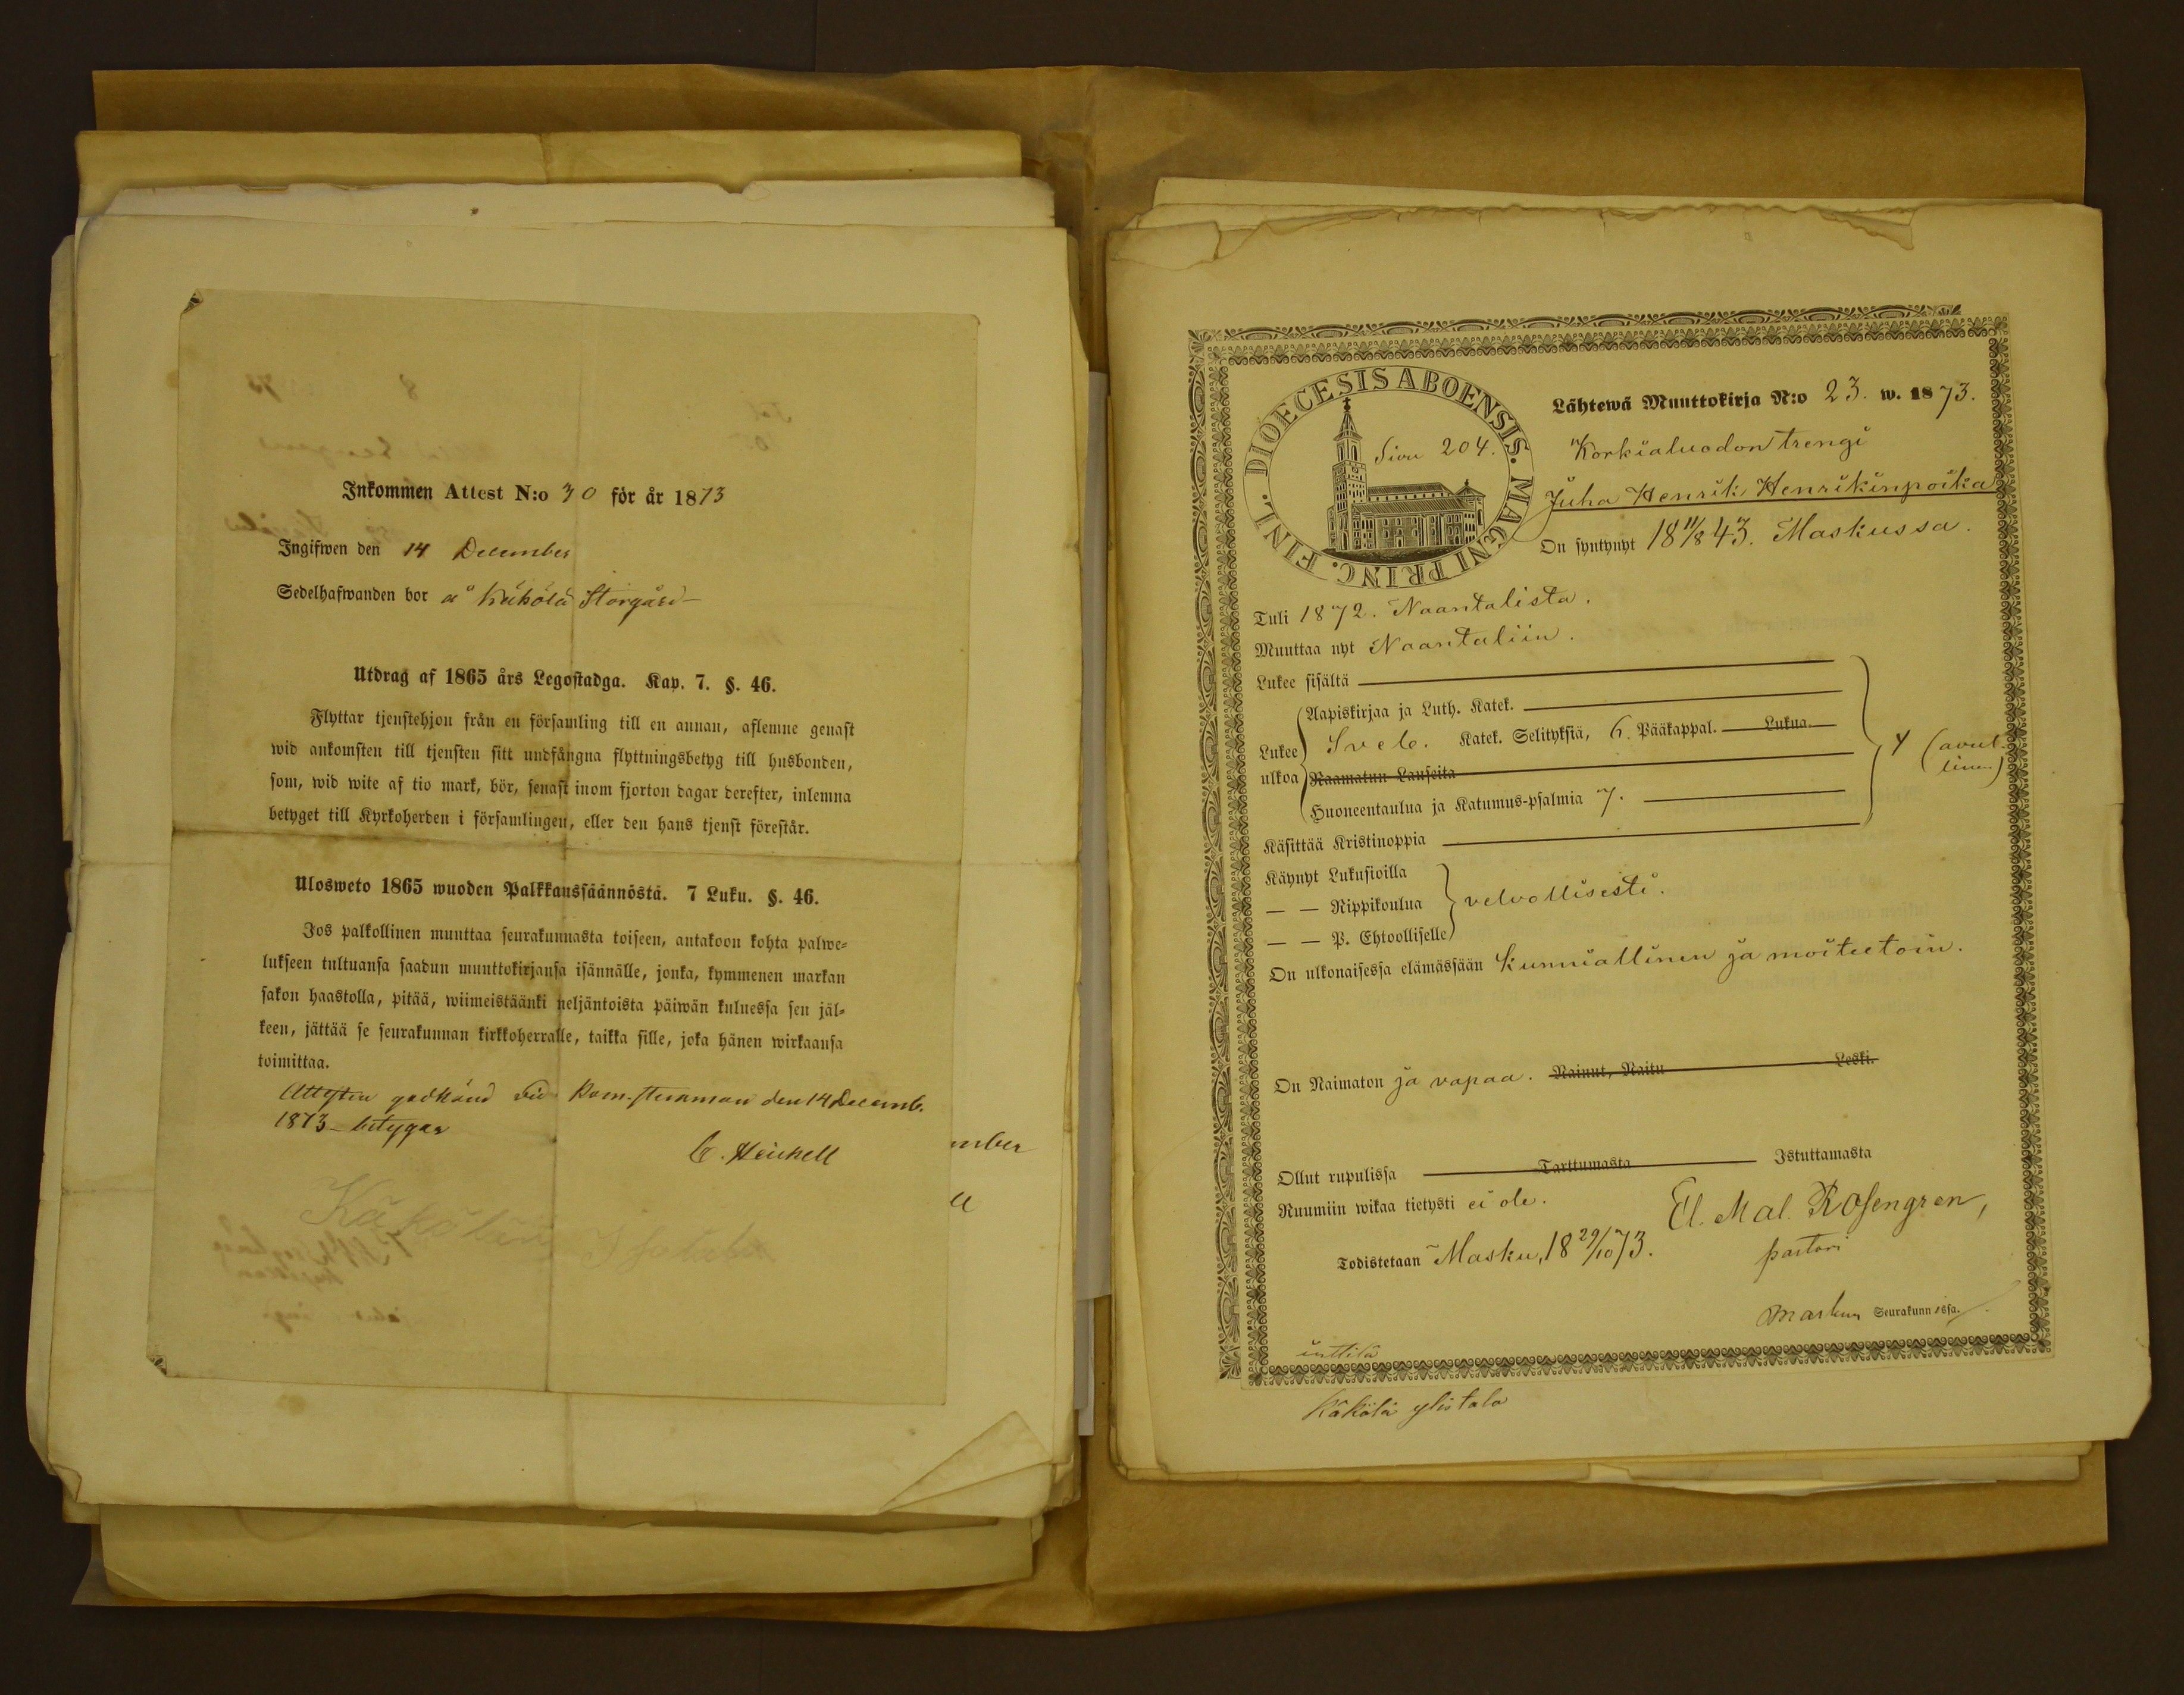 Inkommen Attest N:o 30 för år 1873
Ingifwen den 14 December
Sedelhafwanden bor å Käkölä Storgård
Utdrag af 1865 års Legostadga. Kap. 7. §. 46.
Flyttar tjenstehjon från en församling till en annan, aflemne genast
wid ankomsten till tjensten sitt undfångna flyttningsbetyg till husbonden,
som, wid wite af tio mark, bör, senast inom fjorton dagar derefter, inlemna
betyget till Kyrkoherden i församlingen, eller den hans tjenst förestår.
Ulosweto 1865 wuoden Palkkaussäännöstä. 7 Luku. §. 46.
Jos palkollinen muuttaa seurakunnasta toiseen, antakoon kohta palwe-
lukseen tultuansa saadun muuttokirjansa isännälle, jonka, kymmenen markan
sakon haastolla, pitää, wiimeistäänki neljäntoista päiwän kuluessa sen jäl-
keen, jättää se seurakunnan kirkkoherralle, taikka sille, joka hänen wirkaansa
toimittaa.
Attesten godkänd vid Kom.stemman den 14 Decemb.
1873 betygar
C. Heickell
mber
ll
Käkölän Isotalo
DIOECESIS ABOENSIS. MAGNI PRINC. FINL.
Sivu 204.
Lähtewä Muuttokirja N:o 23. w. 1873.
Korkialuodon trengi
Juha Henrik Henrikinpoika
On syntynyt 18 11/8 43. Maskussa.
Tuli 1872. Naantalista.
Muuttaa nyt Naantaliin.
Lukee sisältä
Aapiskirjaa ja Luth. Katek.
Lukee ulkoa
Sveb. Katek. Selityksiä, 6. Pääkappal. Lukua.
Raamatun Lauseita
Huoneentaulua ja Katumus-psalmia 7.
Käsittää Kristinoppia
Käynyt Lukusioilla
— — Rippikoulua velvollisesti.
— — P. Ehtoolliselle
On ulkonaisessa elämässään kunniallinen ja moiteetoin.
On Naimaton ja vapaa. Nainut, Naitu Leski.
Ollut rupulissa Tarttumasta Istuttamasta
Ruumiin wikaa tietysti ei ole.
El. Mal. Rosengren,
Todistetaan Masku, 18 29/10 73.
pastori
Maskun Seurakunnissa.
inttilä
Käkölä ylistalo